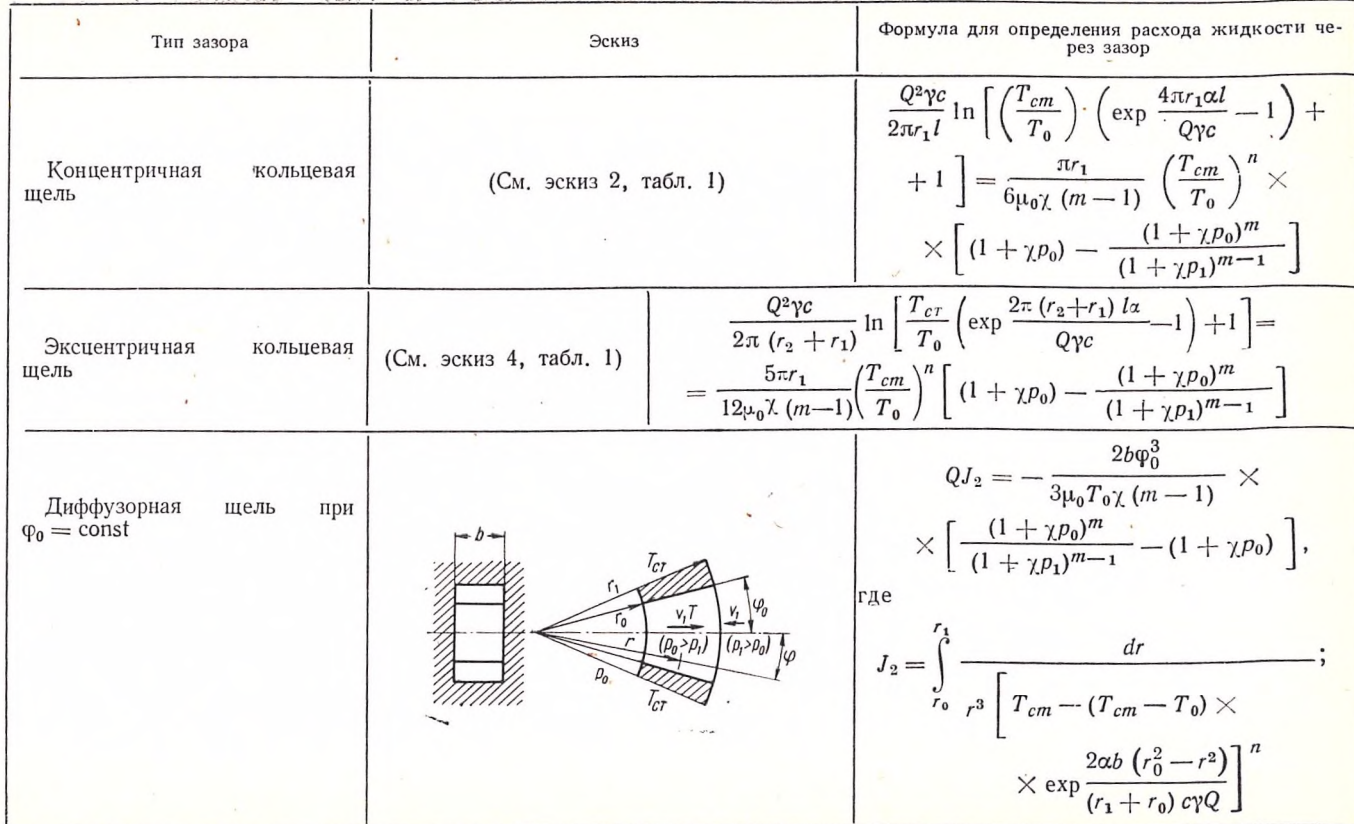 Тип зазора
Эскиз
Формула для определения расхода жидкости че-
рез зазор
Концентричная кольцевая
щель
(См. эскиз 2, табл. 1)
Q²γc / 2πr₁l ln [ (T_cm / T₀) · ( exp 4πr₁αl / Qγc − 1 ) +
+ 1 ] = πr₁ / 6μ₀χ (m − 1) (T_cm / T₀)ⁿ ×
× [ (1 + χp₀) − (1 + χp₀)^m / (1 + χp₁)^{m−1} ]
Эксцентричная кольцевая
щель
(См. эскиз 4, табл. 1)
Q²γc / 2π (r₂ + r₁) ln [ T_ст / T₀ ( exp 2π (r₂+r₁) lα / Qγc −1 ) +1 ] =
= 5πr₁ / 12μ₀χ (m−1) (T_cm / T₀)ⁿ [ (1 + χp₀) − (1 + χp₀)^m / (1 + χp₁)^{m−1} ]
Диффузорная щель при
φ₀ = const
b
T_ст
r₁
r₀
r
v₁T
(p₀>p₁)
v₁
(p₁>p₀)
φ₀
φ
p₀
T_ст
QJ₂ = − 2bφ₀³ / 3μ₀T₀χ (m − 1) ×
× [ (1 + χp₀)^m / (1 + χp₁)^{m−1} − (1 + χp₀) ],
где
J₂ = ∫_{r₀}^{r₁} dr / r³ [ T_cm − (T_cm − T₀) ×
× exp 2αb (r₀² − r²) / (r₁ + r₀) cγQ ]ⁿ ;